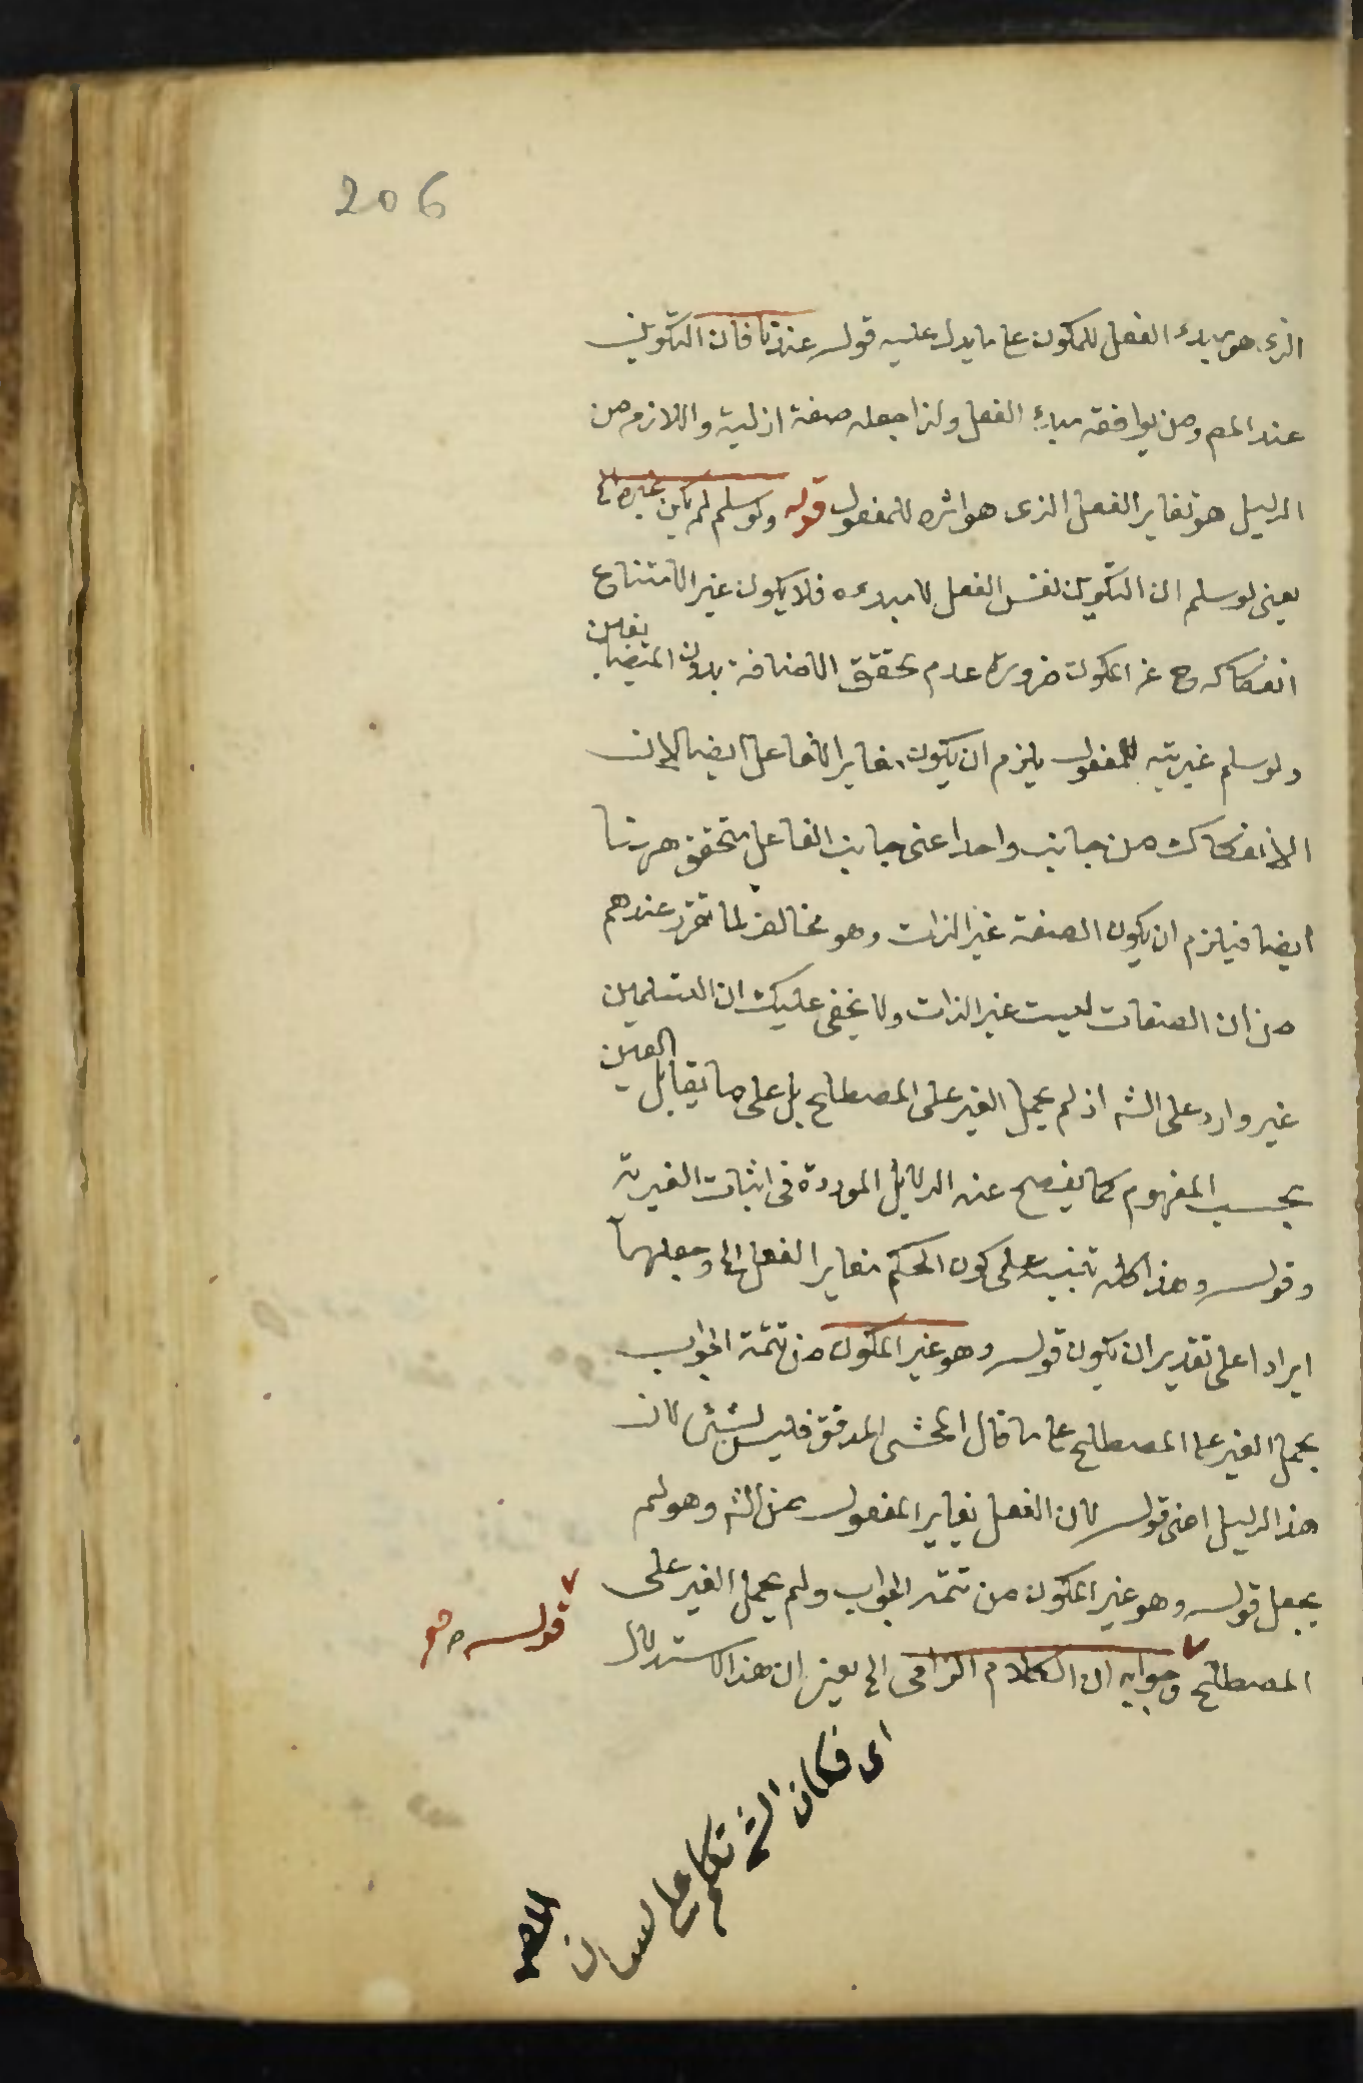 206
الذى هو مبدء الفعل للمكون على ما يدل عليه قوله عندنا فان التكوين
عند المص ومن يوافقه مبدء الفعل ولذا جعله صفة ازلية واللازم من
الدليل هو تغاير الفعل الذى هو اثره للمفعول قوله ولو سلم لم يكن غيره الخ
يعنى لو سلم ان التكوين نفس الفعل لا مبدءه فلا يكون غيرا لامتناع
انفكاكه ح عن المكون ضرورة عدم تحقق الاضافة بدون المتضايفين
ولو سلم غيريته للمفعول يلزم ان يكون مغايرا للفاعل ايضا لان
الانفكاك من جانب واحد اعنى جانب الفاعل متحقق ههنا
ايضا فيلزم ان يكون الصفة غير الذات وهو مخالف لما تقرر عندهم
من ان الصفات ليست غير الذات ولا يخفى عليك ان التسليمين
غير وارد على الشه اذ لم يحمل الغير على المصطلح بل على ما يقابل العين
بحسب المفهوم كما يفصح عنه الدلايل الموردة فى اثبات الغيرية
وقوله وهذا كله تنبيه على كون الحكم بتغاير الفعل الخ وجعلهما
ايرادا على تقدير ان يكون قوله وهو غير المكون من تتمة الجواب
بحمل الغير على المصطلح على ما قال المحشى المدقق فليس بشئ لان
هذا الدليل اعنى قوله لان الفعل يغاير المفعول من الشه وهو لم
يجعل قوله وهو غير المكون من تتمة الجواب ولم يحمل الغير على
المصطلح وجوابه ان الكلام الزامى الخ يعنى ان هذا الاستدلال
قوله صح
اى فكان الشه تكلم على لسان
المص